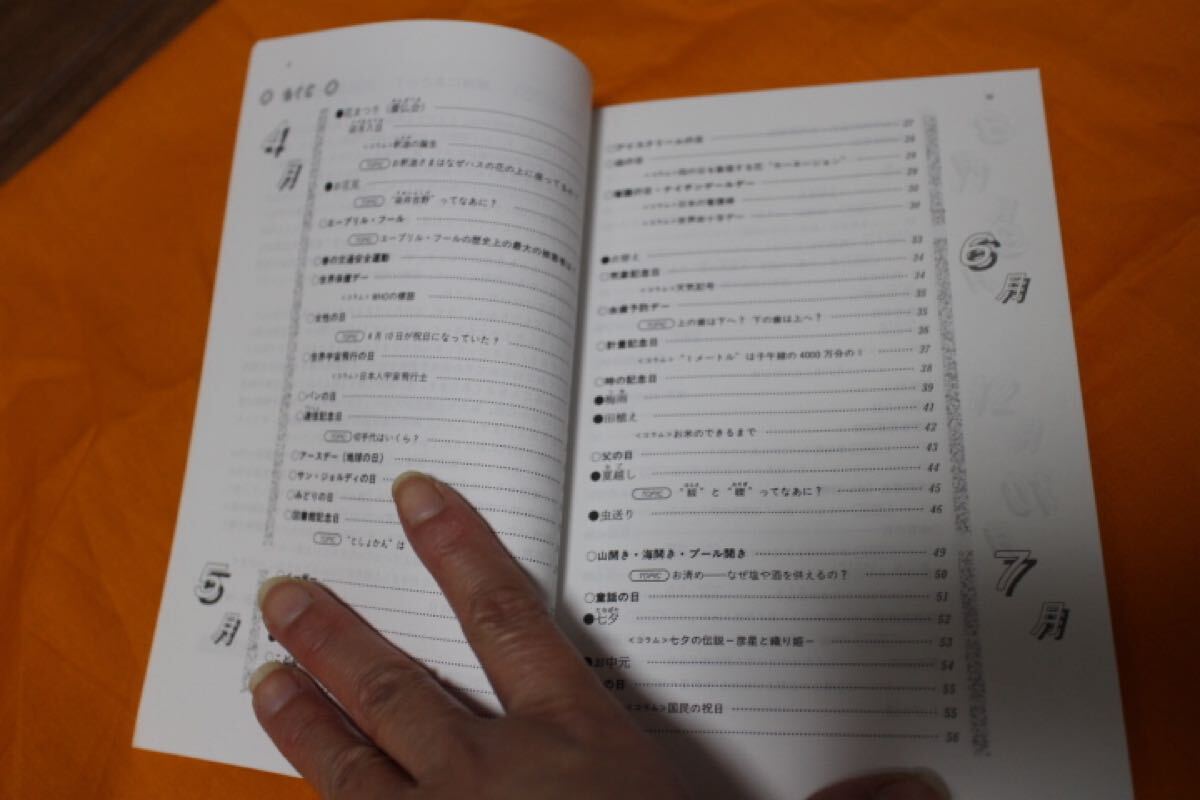 もくじ
4月
●花まつり（灌仏会）
卯月八日
<コラム>釈迦の誕生
TOPIC お釈迦さまはなぜハスの花の上に座ってるの
●お花見
TOPIC “染井吉野”ってなあに？
○エープリル・フール
TOPIC エープリル・フールの歴史上の最大の被害者は
○春の交通安全運動
○世界保健デー
<コラム>WHOの標語
○女性の日
TOPIC 4月10日が祝日になっていた？
○世界宇宙飛行の日
<コラム>日本人宇宙飛行士
○パンの日
○逓信記念日
TOPIC 切手代はいくら？
○アースデー（地球の日）
○サン・ジョルディの日
○みどりの日
○図書館記念日
TOPIC “としょかん”は
5月
○アイスクリームの日 27
○母の日 28
<コラム>母の日を象徴する花“カーネーション” 28
○看護の日・ナイチンゲールデー 29
<コラム>日本の看護婦 30
<コラム>世界赤十字デー 30
6月
●衣替え 33
○気象記念日 34
<コラム>天気記号 34
○虫歯予防デー 35
TOPIC 上の歯は下へ？ 下の歯は上へ？ 35
○計量記念日 36
<コラム>“1メートル”は子午線の4000万分の1 37
○時の記念日 38
●梅雨 39
●田植え 41
<コラム>お米のできるまで 42
○父の日 43
●夏越し 44
TOPIC “祓”と“禊”ってなあに？ 45
●虫送り 46
7月
○山開き・海開き・プール開き 49
TOPIC お清め──なぜ塩や酒を供えるの？ 50
○童話の日 51
●七夕 52
<コラム>七夕の伝説－彦星と織り姫－ 53
●お中元 54
の日 55
<コラム>国民の祝日 55
56